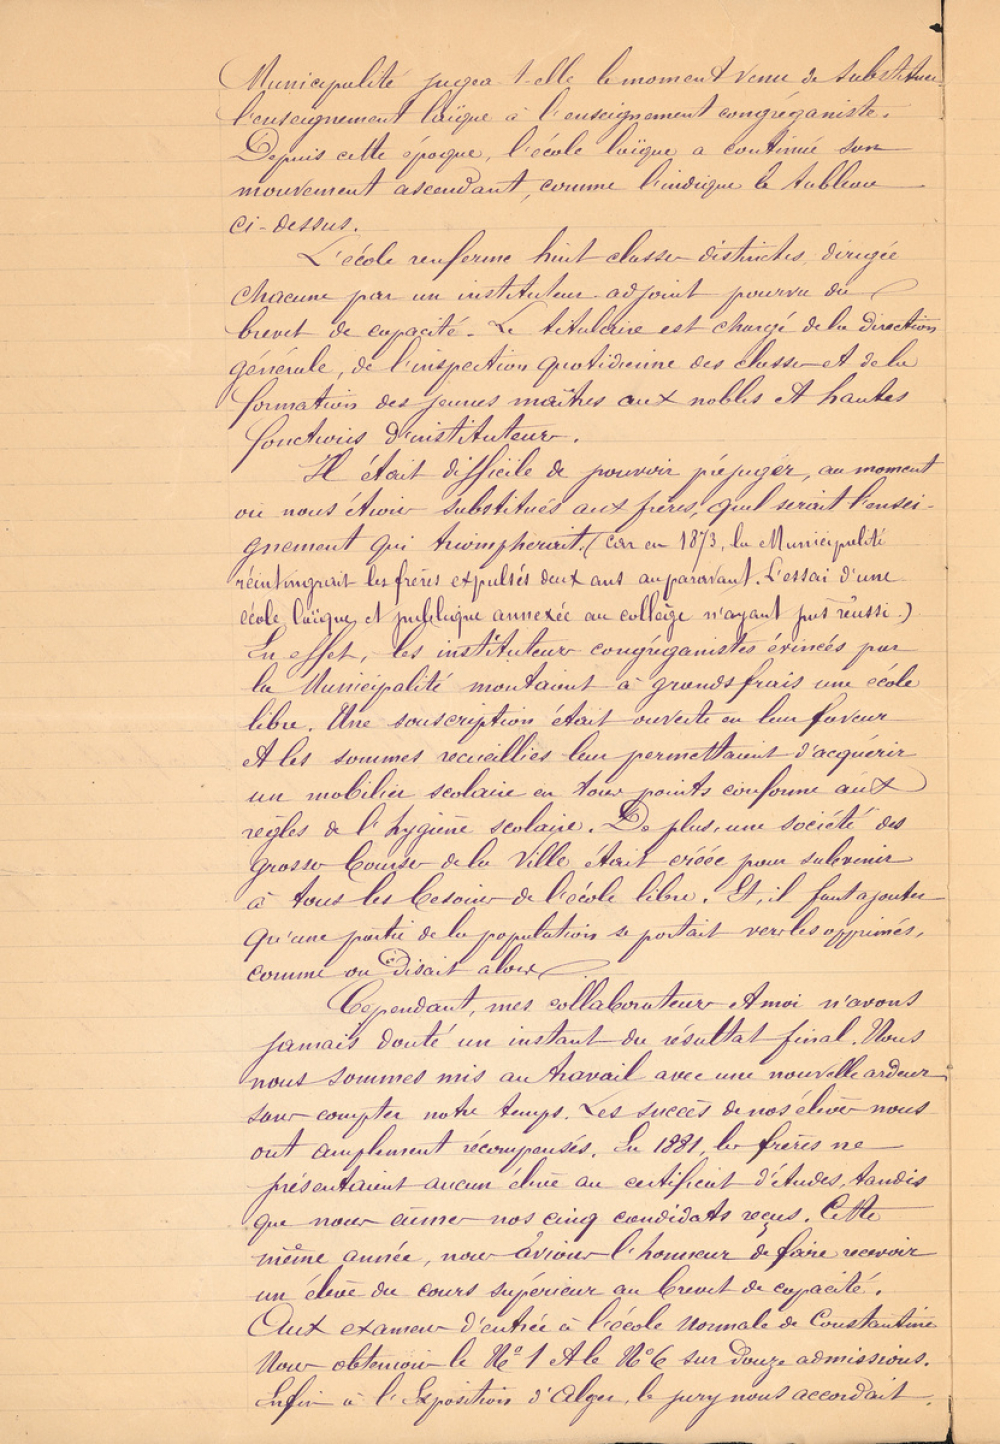 Municipalité jugea t-elle le moment venu de substituer
l'enseignement laïque à l'enseignement congréganiste.
Depuis cette époque, l'école laïque a continué son
mouvement ascendant, comme l'indique le tableau
ci-dessus.
L'école renferme huit classes distinctes, dirigée
chacune par un instituteur-adjoint pourvu du
brevet de capacité. Le titulaire est chargé de la direction
générale, de l'inspection quotidienne des classes et de la
formation des jeunes maîtres aux nobles et hautes
fonctions d'instituteurs.
Il était difficile de pouvoir préjuger, au moment
où nous étions substitués aux frères, quel serait l'ensei-
gnement qui triompherait. (Car en 1873, la Municipalité
réintégrait les frères expulsés deux ans auparavant. L'essai d'une
école laïque et publique annexée au collège n'ayant pas réussi.)
En effet, les instituteurs congréganistes évincés par
la Municipalité montaient à grands frais une école
libre. Une souscription était ouverte en leur faveur
et les sommes recueillies leur permettaient d'acquérir
un mobilier scolaire en tous points conforme aux
règles de l'hygiène scolaire. De plus, une société des
grosses bourses de la Ville était créée pour subvenir
à tous les besoins de l'école libre. Et, il faut ajouter
qu'une partie de la population se portait vers les opprimés,
comme on disait alors.
Cependant, mes collaborateurs et moi n'avons
jamais douté un instant du résultat final. Nous
nous sommes mis au travail avec une nouvelle ardeur
sans compter notre temps. Les succès de nos élèves nous
ont amplement récompensés. En 1881, les frères ne
présentaient aucun élève au certificat d'études, tandis
que nous eûmes nos cinq candidats reçus. Cette
même année, nous avions l'honneur de faire recevoir
un élève du cours supérieur au brevet de capacité.
Aux examens d'entrée à l'école Normale de Constantine
Nous obtenions le N° 1 et le N° 6 sur douze admissions.
Enfin à l'Exposition d'Alger, le jury nous accordait